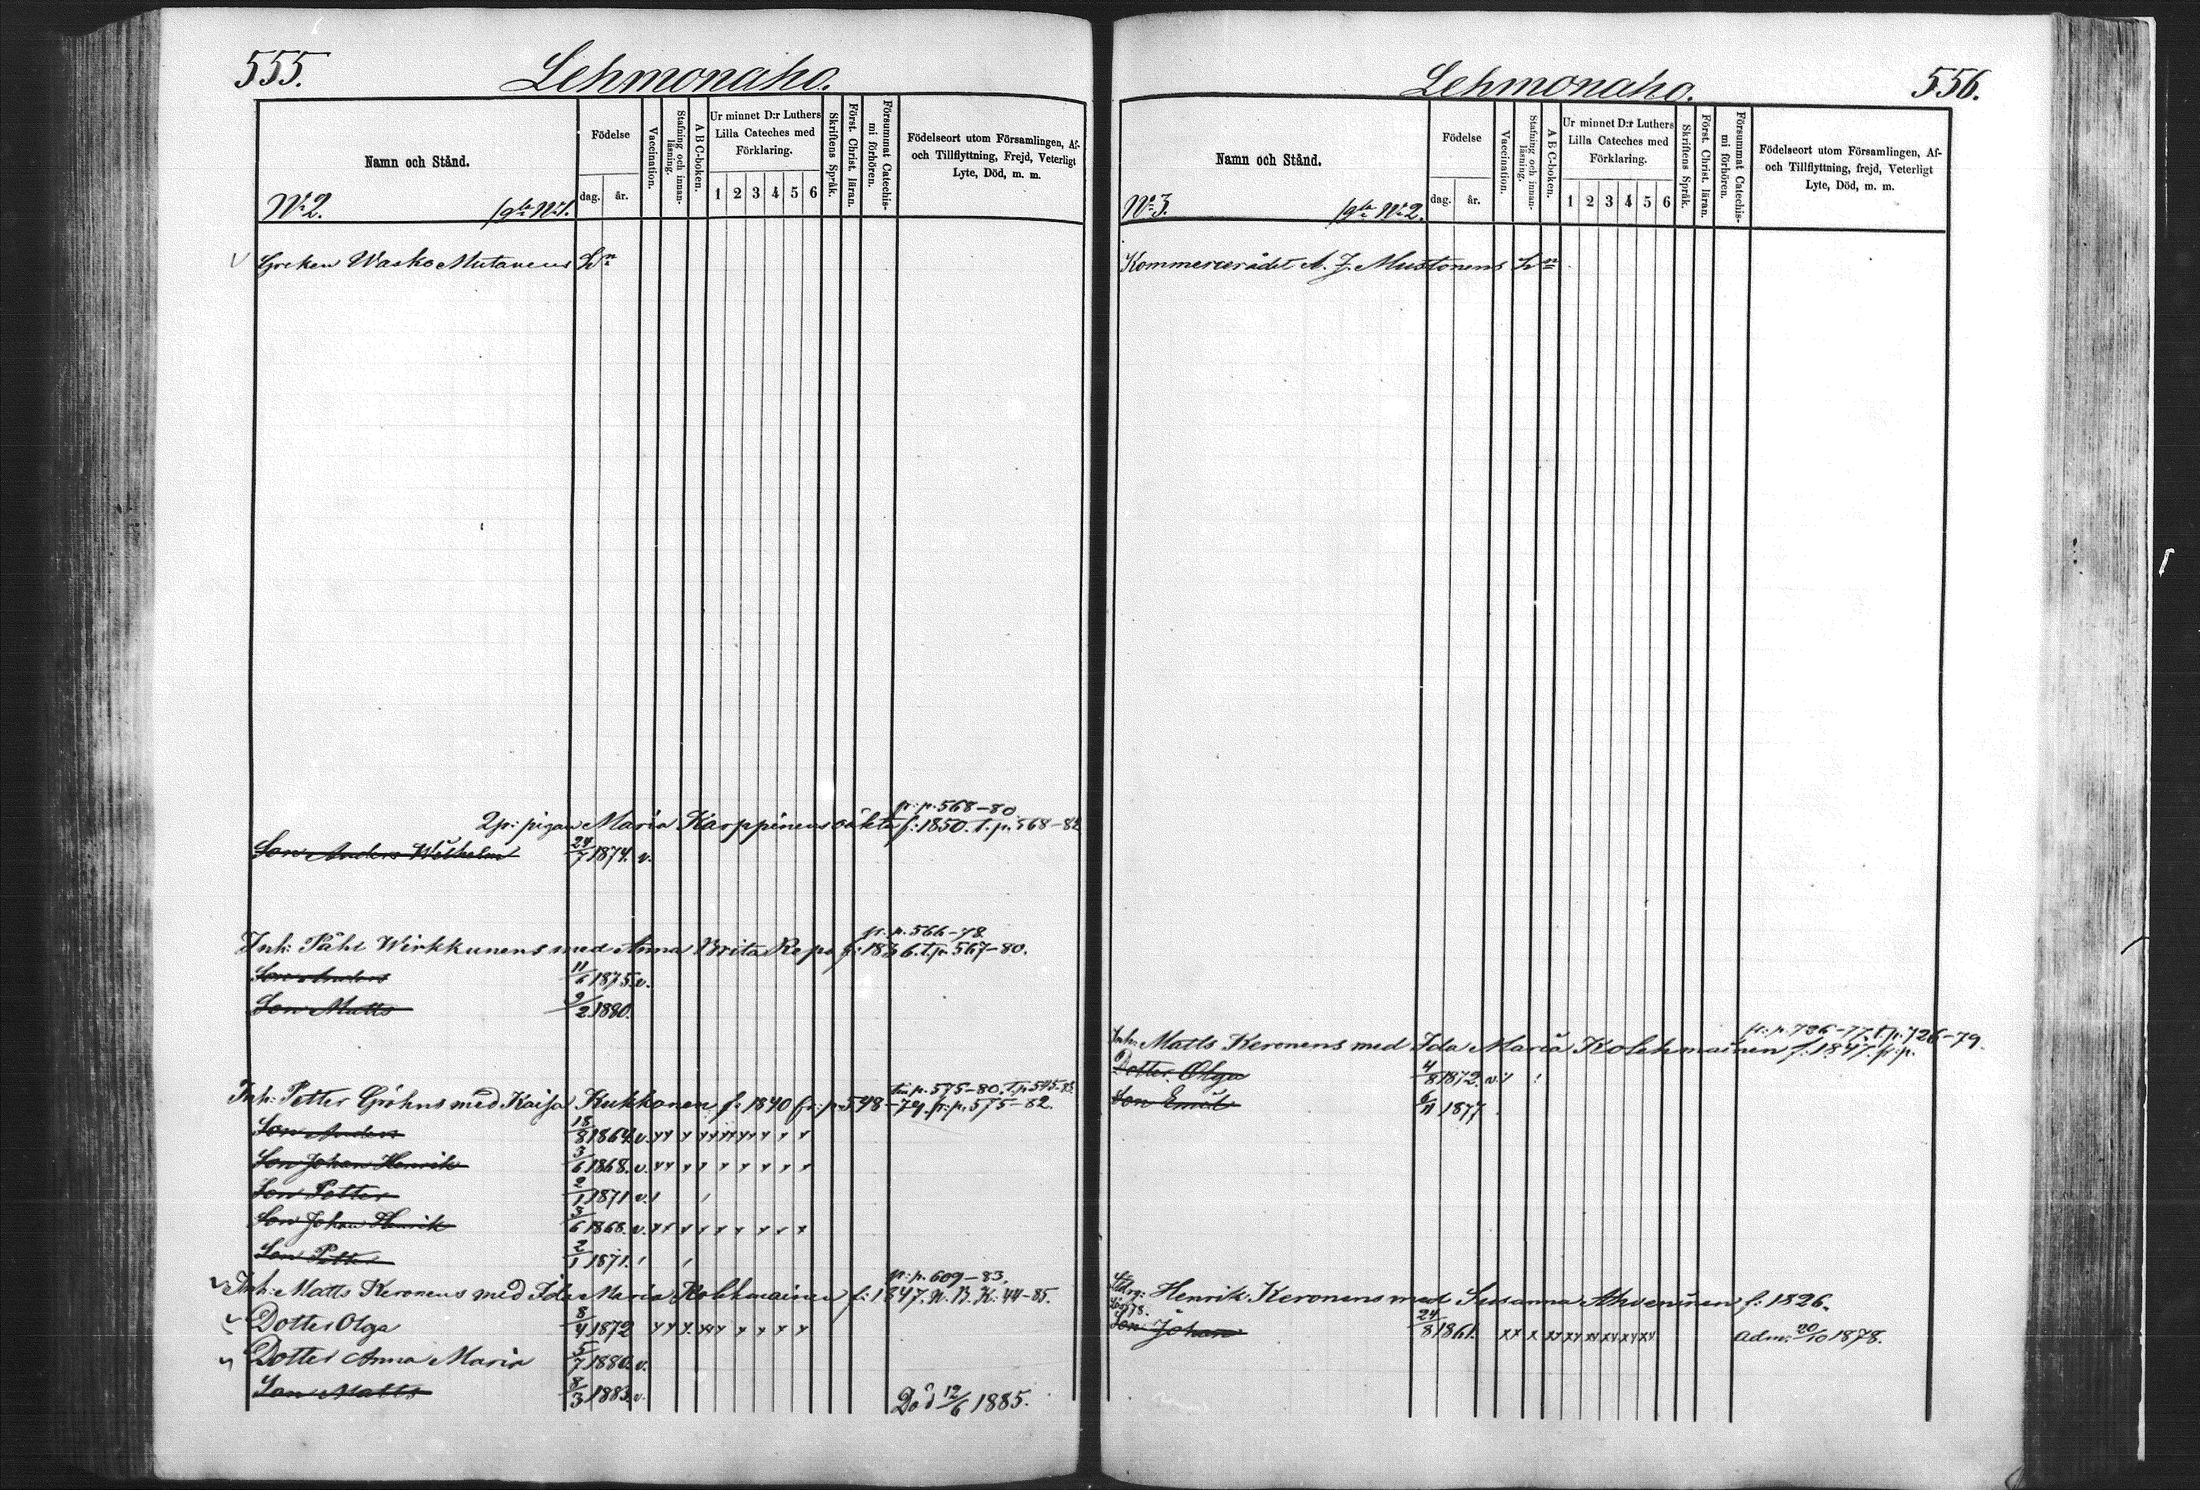 555.
Lehmonaho.
Namn och Stånd.
Födelse
dag.
år.
Vaccination.
Stafning och innan-läsning.
A B C-boken.
Ur minnet D:r Luthers
Lilla Cateches med
Förklaring.
1 2 3 4 5 6
Skriftens Språk.
Först. Christ. läran.
Försummat Catechis-mi förhören.
Födelseort utom Församlingen, Af-
och Tillflyttning, Frejd, Veterligt
Lyte, Död, m. m.
No 2.
Greken Wasko Mutanens Sn
fr: p. 568-80.
pigan Maria Karppinens oäkta f: 1850. T. p. 568-82
Son Anders Wilhelm 24/7 1874. v.
fr. p. 566-78.
Inh: Påhl Wirkkunens med Anna Brita Repo f: 1836. T. p. 567-80.
Son Anders 11/6 1875. v.
Son Matts 9/2 1880.
p. 575-80. T. p. 545-83
Inh: Petter Gröhns med Kaisa Kukkonen f: 1840 fr: p. 548-79. fr: p. 575-82.
Son Anders 18/8 1864. v.
Son Johan Henrik 3/6 1868. v.
Son Petter 2/1 1871 v.
Son Johan Henrik 3/6 1868. v.
Son Petter 2/1 1871.
fr: p. 609-83.
Inh: Matts Keronens med Ida Maria Kolehmainen f: 1847. N. B. K. 44-85.
Dotter Olga 8/4 1872
Dotter Anna Maria 5/7 1880. v.
Son Matts 8/3 1883. v. Död 12/6 1885.
Lehmonaho.
556.
Namn och Stånd.
Födelse
dag.
år.
Vaccination.
Stafning och innan-läsning.
A B C-boken.
Ur minnet D:r Luthers
Lilla Cateches med
Förklaring.
1 2 3 4 5 6
Skriftens Språk.
Först. Christ. läran.
Försummat Catechis-mi förhören.
Födelseort utom Församlingen, Af-
och Tillflyttning, frejd, Veterligt
Lyte, Död, m. m.
No 3.
Kommerserådet A. J. Mustonens Sn
fr: p. 726-77. T. p. 726-79.
Inh: Matts Keronens med Ida Maria Kolehmainen f: 1847.
Dotter Olga 4/8 1872. v.
Son Emil 6/11 1877.
Henrik Keronens med Susanna Ahveninen f: 1826.
Son Johan 24/8 1861. adm: 20/10 1878.